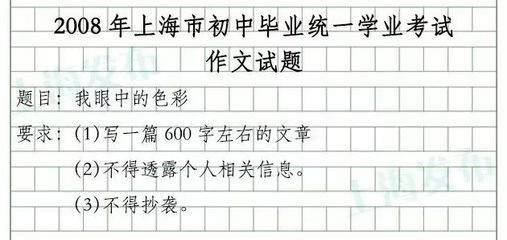 2008 年上海市初中毕业统一学业考试
作文试题
题目：我眼中的色彩
要求：(1)写一篇 600 字左右的文章
(2)不得透露个人相关信息。
(3)不得抄袭。
上海发布
上海发布